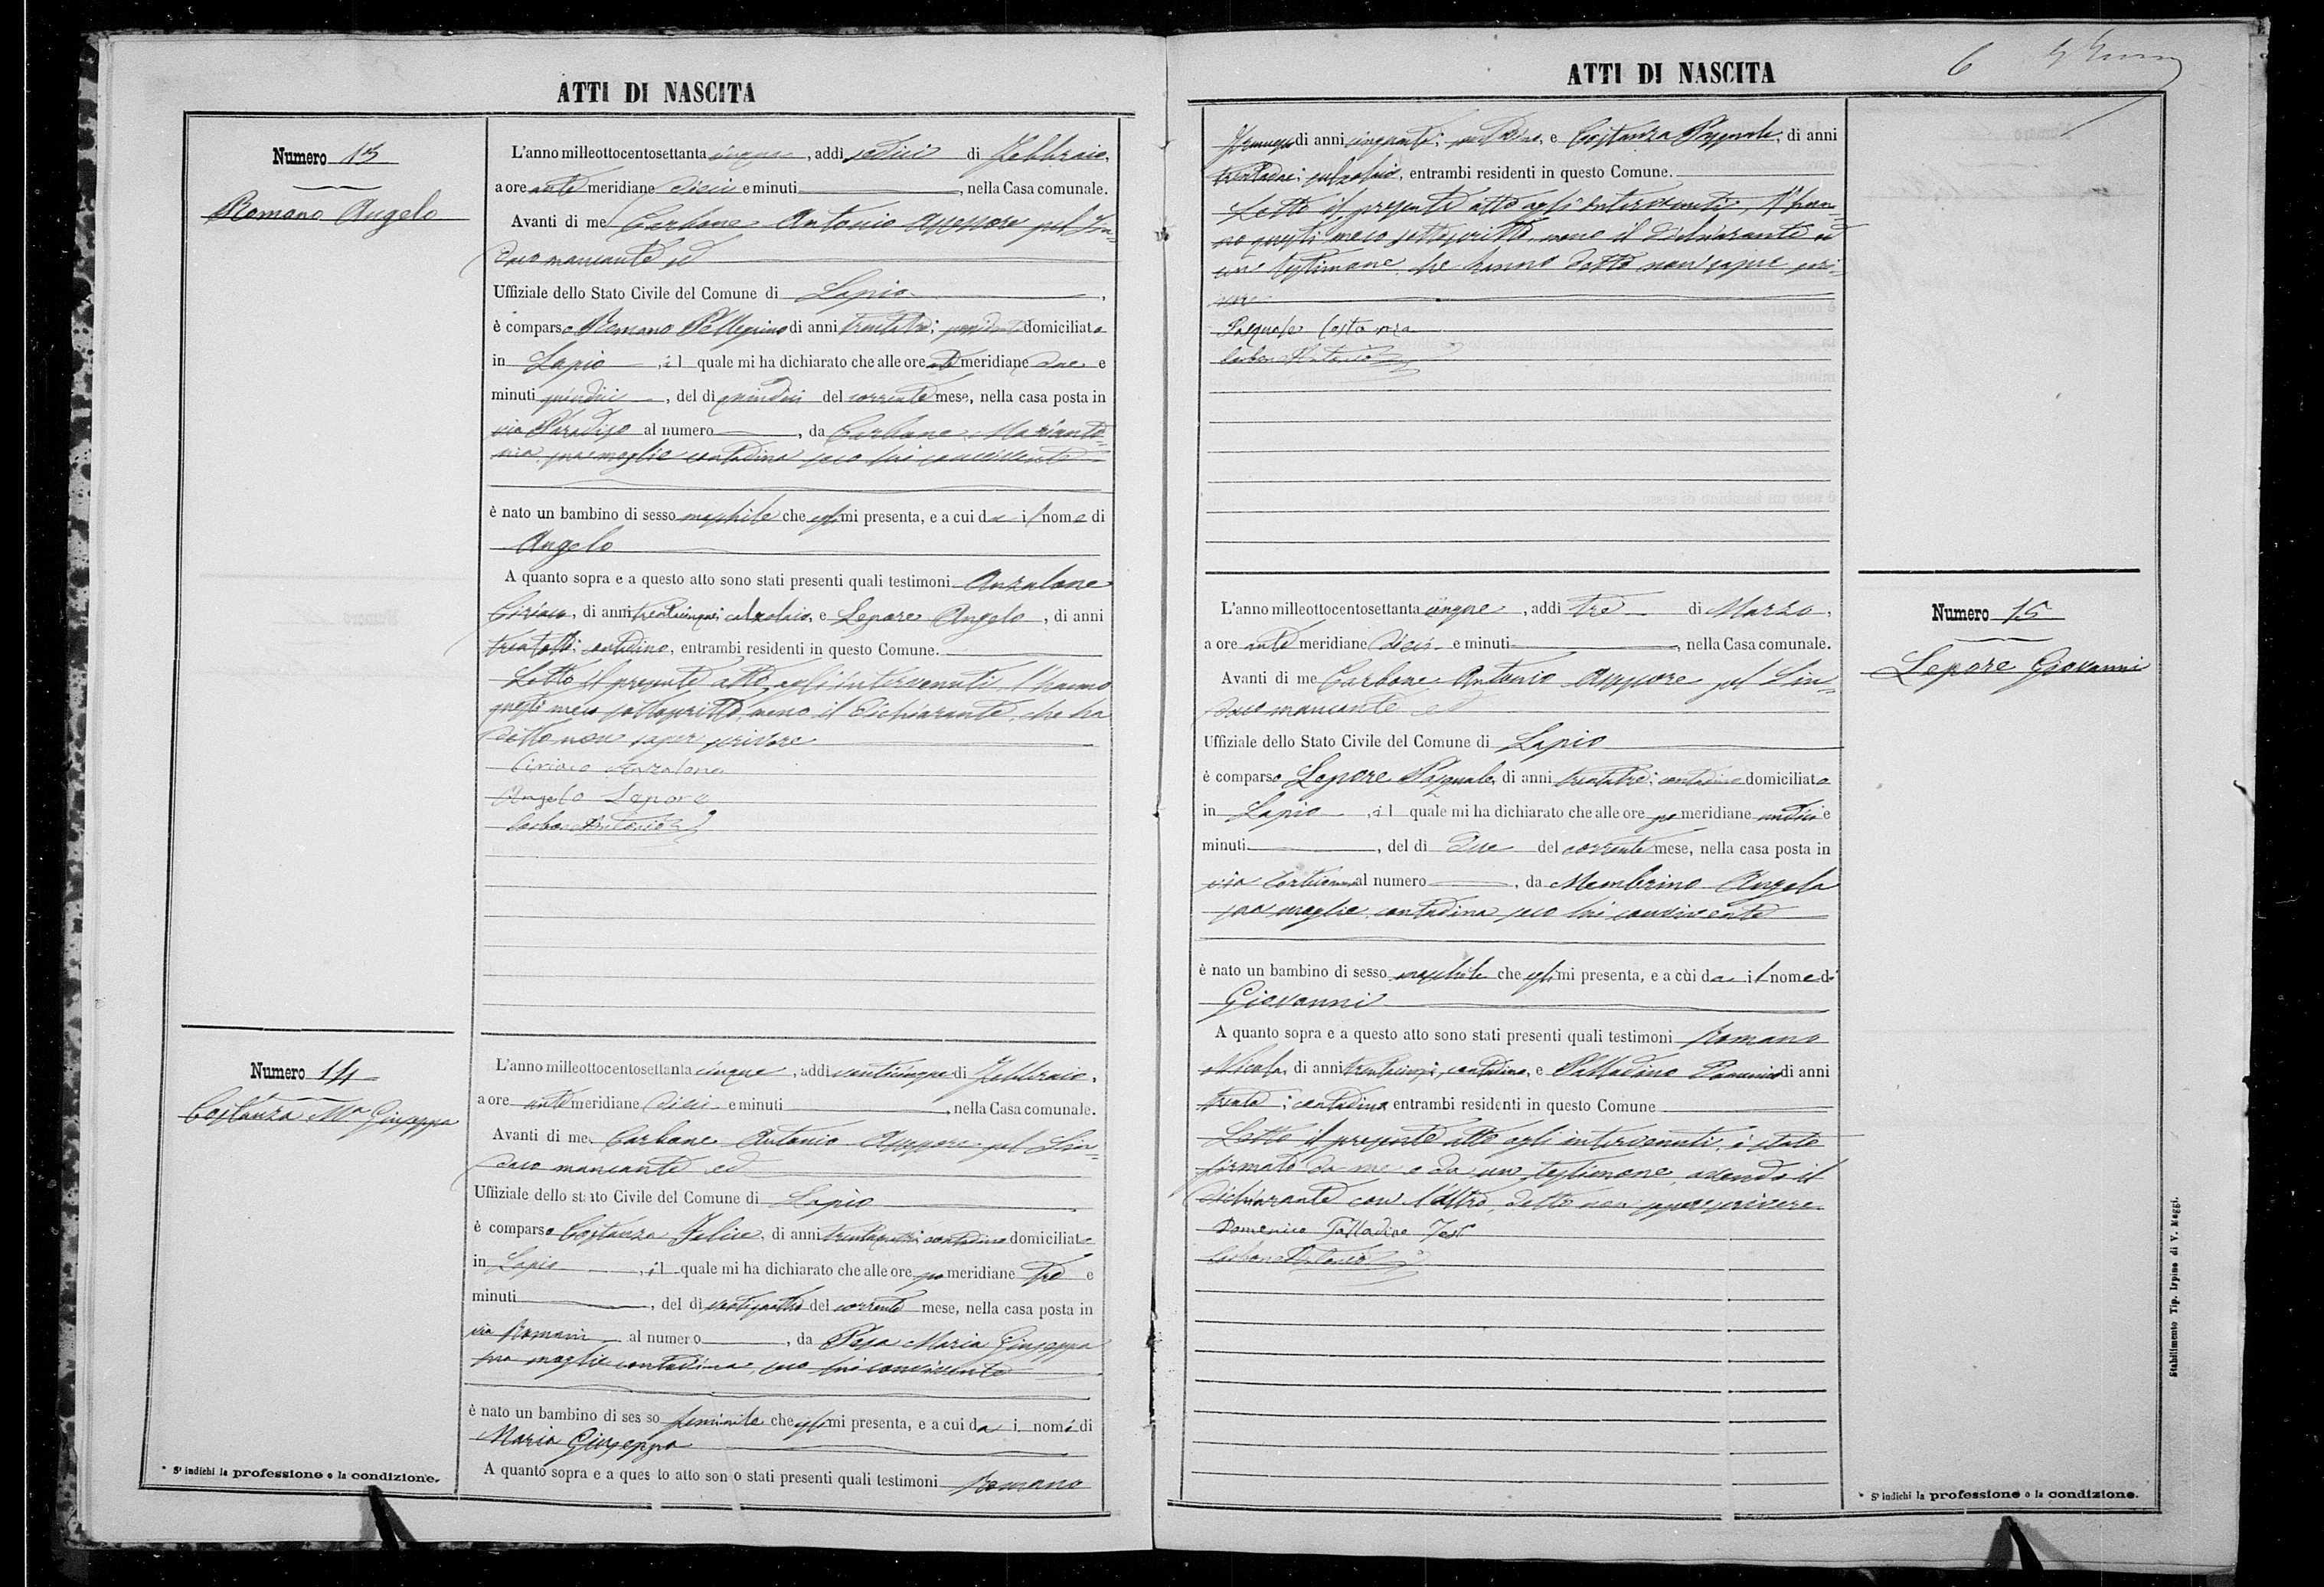 ATTI DI NASCITA
Numero 13
Romano Angelo
L'anno milleottocentosettanta cinque, addi sedici di Febbraio,
a ore ante meridiane dieci e minuti, nella Casa comunale.
Avanti di me Carbone Antonio Assessore pel Sin=
daco mancante ed
Uffiziale dello Stato Civile del Comune di Lapio,
è comparso Romano Pellegrino di anni trentatre; domiciliato
in Lapio, il quale mi ha dichiarato che alle ore ante meridiane due e
minuti quindici, del dì quindici del corrente mese, nella casa posta in
via Paradiso al numero, da Carbone Marianto=
nia sua moglie contadina seco lui convivente
è nato un bambino di sesso maschile che egli mi presenta, e a cui da il nome di
Angelo
A quanto sopra e a questo atto sono stati presenti quali testimoni Anzalone
Ciriaco, di anni trentacinque; calzolaio, e Lepore Angelo, di anni
trentotto; contadino, entrambi residenti in questo Comune.
Letto il presente atto agli intervenuti, l'hanno
questi meco sottoscritto, meno il dichiarante, che ha
detto non saper scrivere
Ciriaco Anzalone
Angelo Lepore
Carbone Antonio
Numero 14
Costanza Ma Giuseppa
L'anno milleottocentosettanta cinque, addi venticinque di Febbraio,
a ore ante meridiane dieci e minuti, nella Casa comunale.
Avanti di me Carbone Antonio Assessore pel Sin=
daco mancante ed
Uffiziale dello stato Civile del Comune di Lapio
è comparso Costanza Felice, di anni trentaquattro; contadino domiciliato
in Lapio, il quale mi ha dichiarato che alle ore po meridiane tre e
minuti, del dì ventiquattro del corrente mese, nella casa posta in
via Romani al numero, da Pesa Maria Giuseppa
sua moglie contadina, seco lui convivente
è nato un bambino di sesso feminile che egli mi presenta, e a cui da i nomi di
Maria Giuseppa
A quanto sopra e a questo atto sono stati presenti quali testimoni Romano
* Si indichi la professione o la condizione.
ATTI DI NASCITA
6
di anni cinquanta; contadino, e Costanza Pasquale, di anni
trentadue; calzolaio, entrambi residenti in questo Comune.
Letto il presente atto agli intervenuti, l'han=
no questi meco sottoscritto, meno il dichiarante ed
un testimone, che hanno detto non sapere scri=
vere
Pasquale Costanza
Carbone Antonio
Numero 15
Lepore Giovanni
L'anno milleottocentosettanta cinque, addi tre di Marzo,
a ore ante meridiane dieci e minuti, nella Casa comunale.
Avanti di me Carbone Antonio Assessore pel Sin=
daco mancante ed
Uffiziale dello Stato Civile del Comune di Lapio
è comparso Lepore Pasquale, di anni trentatre; contadino domiciliato
in Lapio, il quale mi ha dichiarato che alle ore po meridiane undici e
minuti, del dì due del corrente mese, nella casa posta in
via al numero, da Membrino Angela
sua moglie, contadina seco lui convivente
è nato un bambino di sesso maschile che egli mi presenta, e a cùi da il nome di
Giovanni
A quanto sopra e a questo atto sono stati presenti quali testimoni Romano
Nicola, di anni trentacinque, contadino, e Palladino Domenico di anni
trenta; contadino entrambi residenti in questo Comune
Letto il presente atto agli intervenuti, è stato
firmato da me e da un testimone, avendo il
dichiarante con l'altro, detto non sapere scrivere.
Domenico Palladino Test
Carbone Antonio
* Si indichi la professione o la condizione.
Stabilimento Tip. Irpino di V. Maggi.